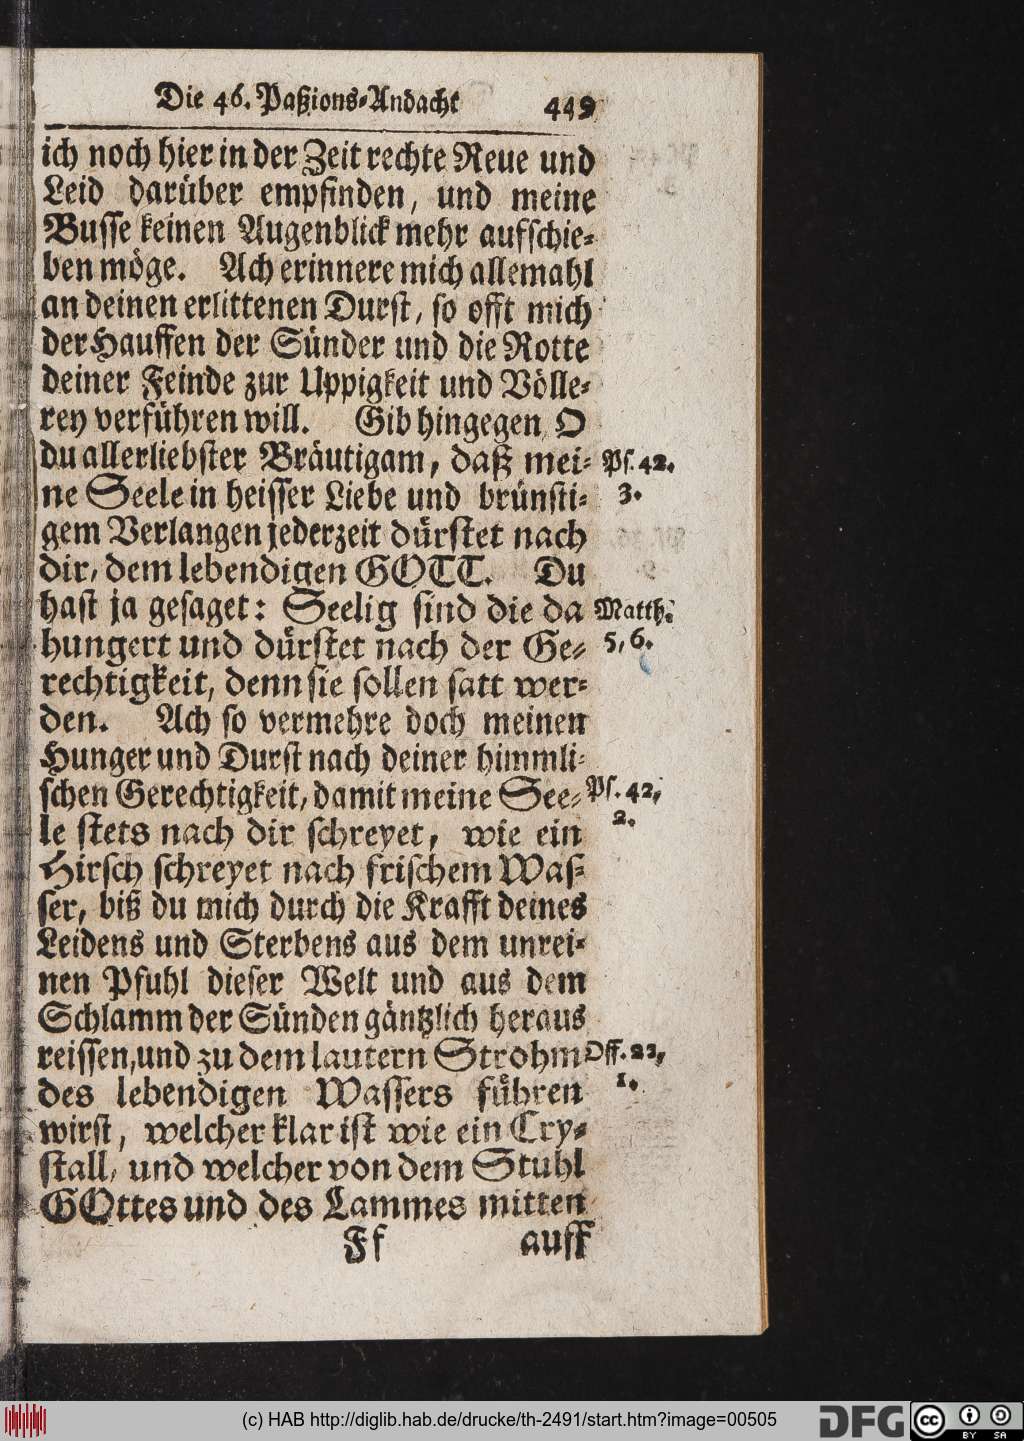 Die 46. Paßions-Andacht 449
ich noch hier in der Zeit rechte Reue und
Leid darüber empfinden, und meine
Busse keinen Augenblick mehr aufschie-
ben möge. Ach erinnere mich allemahl
an deinen erlittenen Durst, so offt mich
der Hauffen der Sünder und die Rotte
deiner Feinde zur Uppigkeit und Völle-
rey verführen will. Gib hingegen O
du allerliebster Bräutigam, daß mei- Ps. 42.
ne Seele in heisser Liebe und brünsti- 3.
gem Verlangen jederzeit dürstet nach
dir, dem lebendigen GOTT. Du
hast ja gesaget: Seelig sind die da Matth.
hungert und dürstet nach der Ge- 5, 6.
rechtigkeit, denn sie sollen satt wer-
den. Ach so vermehre doch meinen
Hunger und Durst nach deiner himmli-
schen Gerechtigkeit, damit meine See- Ps. 42,
le stets nach dir schreyet, wie ein 2.
Hirsch schreyet nach frischem Was-
ser, biß du mich durch die Krafft deines
Leidens und Sterbens aus dem unrei-
nen Pfuhl dieser Welt und aus dem
Schlamm der Sünden gäntzlich heraus
reissen, und zu dem lautern Strohm Off. 22,
des lebendigen Wassers führen 1.
wirst, welcher klar ist wie ein Cry-
stall, und welcher von dem Stuhl
GOttes und des Lammes mitten
Ff auff
(c) HAB http://diglib.hab.de/drucke/th-2491/start.htm?image=00505
DFG cc BY SA